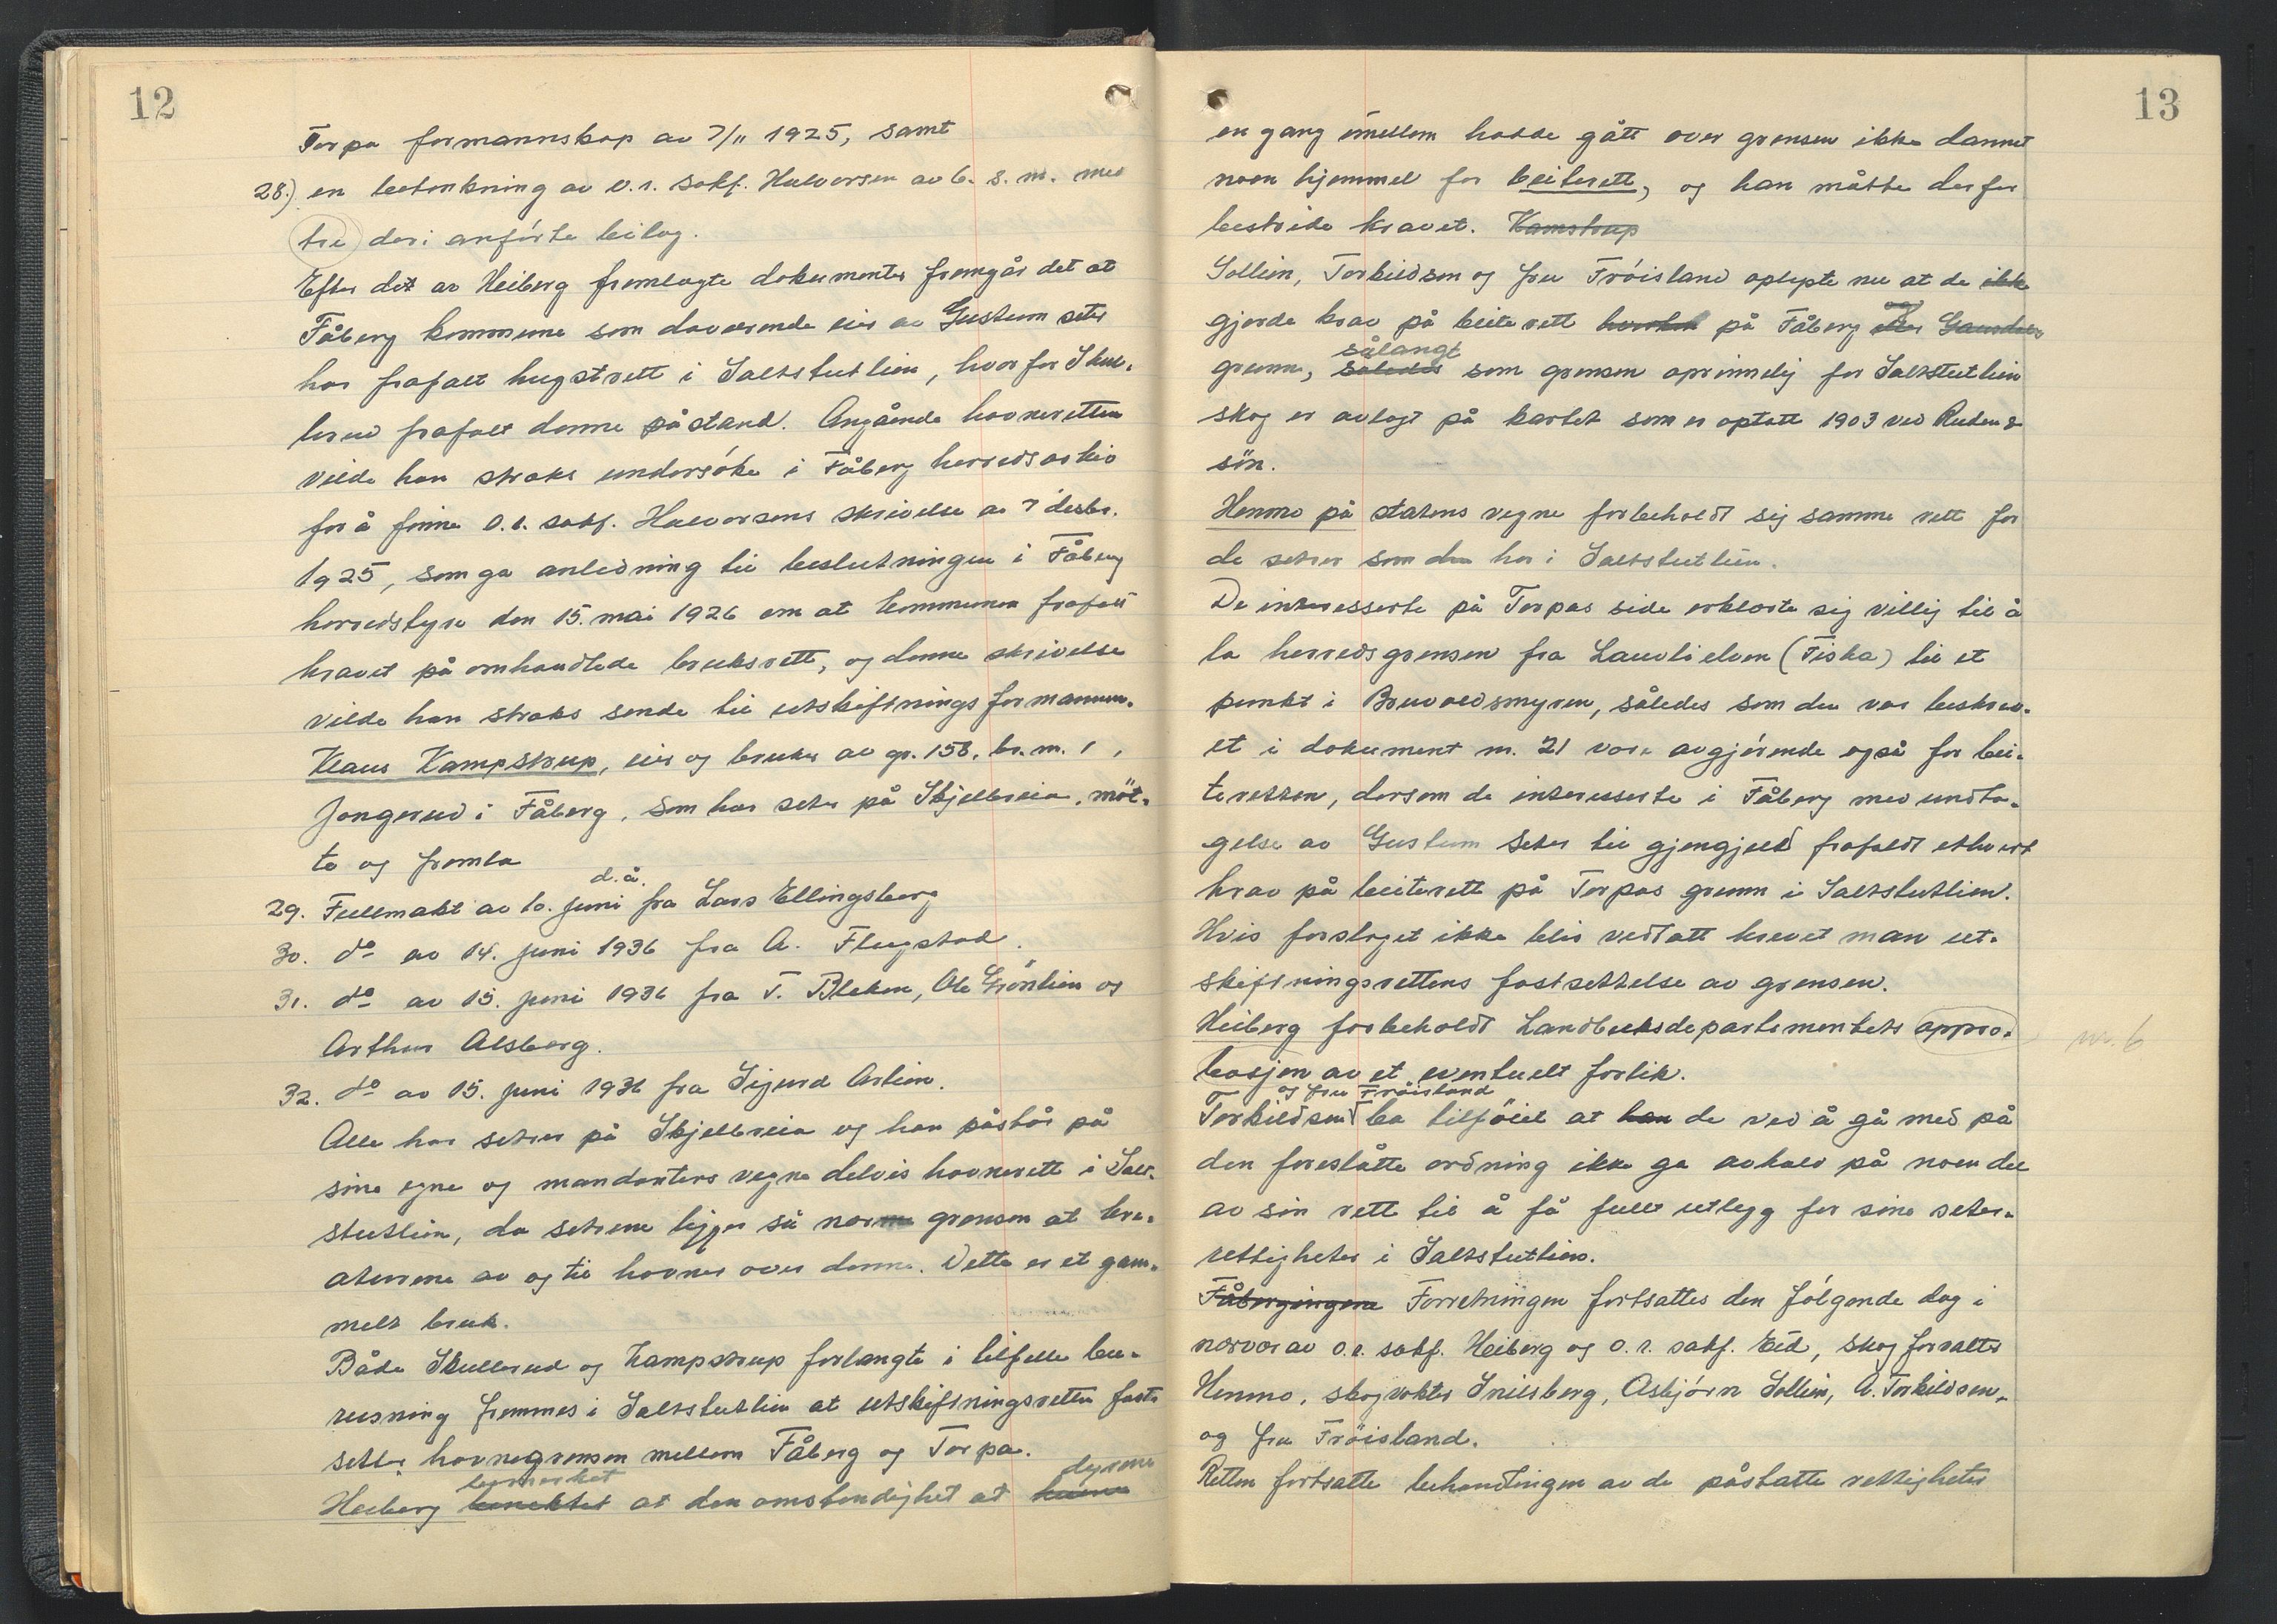 12
Torpa formannskap av 7/11 1925, samt
28.) en betenkning av o.r. sakf. Halvorsen av 6. s. m. med
tre deri anførte bilag.
Efter det av Heiberg fremlagte dokumenter fremgår det at
Fåberg kommune som daværende eier av Gustum seter
har frafalt hugstrett i Saltstutlien, hvorfor Skul-
lerud frafalt denne påstand. Angående havneretten
vilde han straks undersøke i Fåberg herredsarkiv
for å finne o.r. sakf. Halvorsens skrivelse av 7 desbr.
1925, som ga anledning til beslutningen i Fåberg
herredstyre den 15. mai 1926 om at kommunen frafalt
kravet på omhandlede bruksrett, og denne skrivelse
vilde han straks sende til utskiftningsformannen.
Klaus Kampstrup, eier og bruker av gr. 158, br. nr. 1,
Jongerud i Fåberg, som har seter på Skjellbreia, møt-
te og fremla
d.å.
29. Fullmakt av 10. juni fra Lars Ellingsberg
30. do av 14. juni 1936 fra A. Flugstad.
31. do av 15. juni 1936 fra T. Bleken, Ole Grønlien og
Arthur Alsberg.
32. do av 15. juni 1936 fra Sigurd Aslien.
Alle har setrer på Skjellbreia og han påstår på
sine egne og mandanters vegne delvis havnerett i Salt-
stutlien, da setrene ligger så nær grensen at krea-
turene av og til havner over denne. Dette er et gam-
melt bruk.
Både Skullerud og Kampstrup forlangte i tilfelle beit-
rusning fremmes i Saltstutlien at utskiftningsretten fast-
setter havnegrensen mellem Fåberg og Torpa.
bemerket dyrene
Heiberg at den omstendighet at
13
en gang imellem hadde gått over grensen ikke dannet
noen hjemmel for beiterett, og han måtte derfor
bestride kravet. Kamstrup
Sollien, Torkildsen og fru Frøisland oplyste nu at de ikke
gjorde krav på beiterett på Fåberg og
sålangt
grunn, således som grensen oprinnelig for Saltstutlien
skog er avlagt på kartet som er optatt 1903 ved Ruden &
søn.
Henmo på statens vegne forbeholdt sig samme rett for
de setrer som den har i Saltstutlien.
De interesserte på Torpas side erklærte sig villig til å
la herredsgrensen fra Lauvlielven (Fiska) til et
punkt i Bruvoldsmyren, således som den var beskrev-
et i dokument nr. 21 være avgjørende også for bei-
teretten, dersom de interesserte i Fåberg med undta-
gelse av Gustum seter til gjengjeld frafaldt ethvert
krav på beiterett på Torpas grunn i Saltstutlien.
Hvis forslaget ikke blir vedtatt krevet man ut-
skiftningsrettens fastsettelse av grensen.
Heiberg forbeholdt Landbruksdepartementets appro-
nr. 6
basjon av et eventuelt forlik.
og fru Frøisland
Torkildsen ba tilføiet at han de ved å gå med på
den foreslåtte ordning ikke ga avkald på noen del
av sin rett til å få fullt utlegg for sine seter-
rettigheter i Saltstutlien.
Fåbergingene Forretningen fortsattes den følgende dag i
nærvær av o.r. sakf. Heiberg og o.r. sakf. Eid, skogforvalter
Henmo, skogvokter Snilsberg, Asbjørn Sollien, A. Torkildsen
og fru Frøisland.
Retten fortsatte behandlingen av de påstatte rettigheter